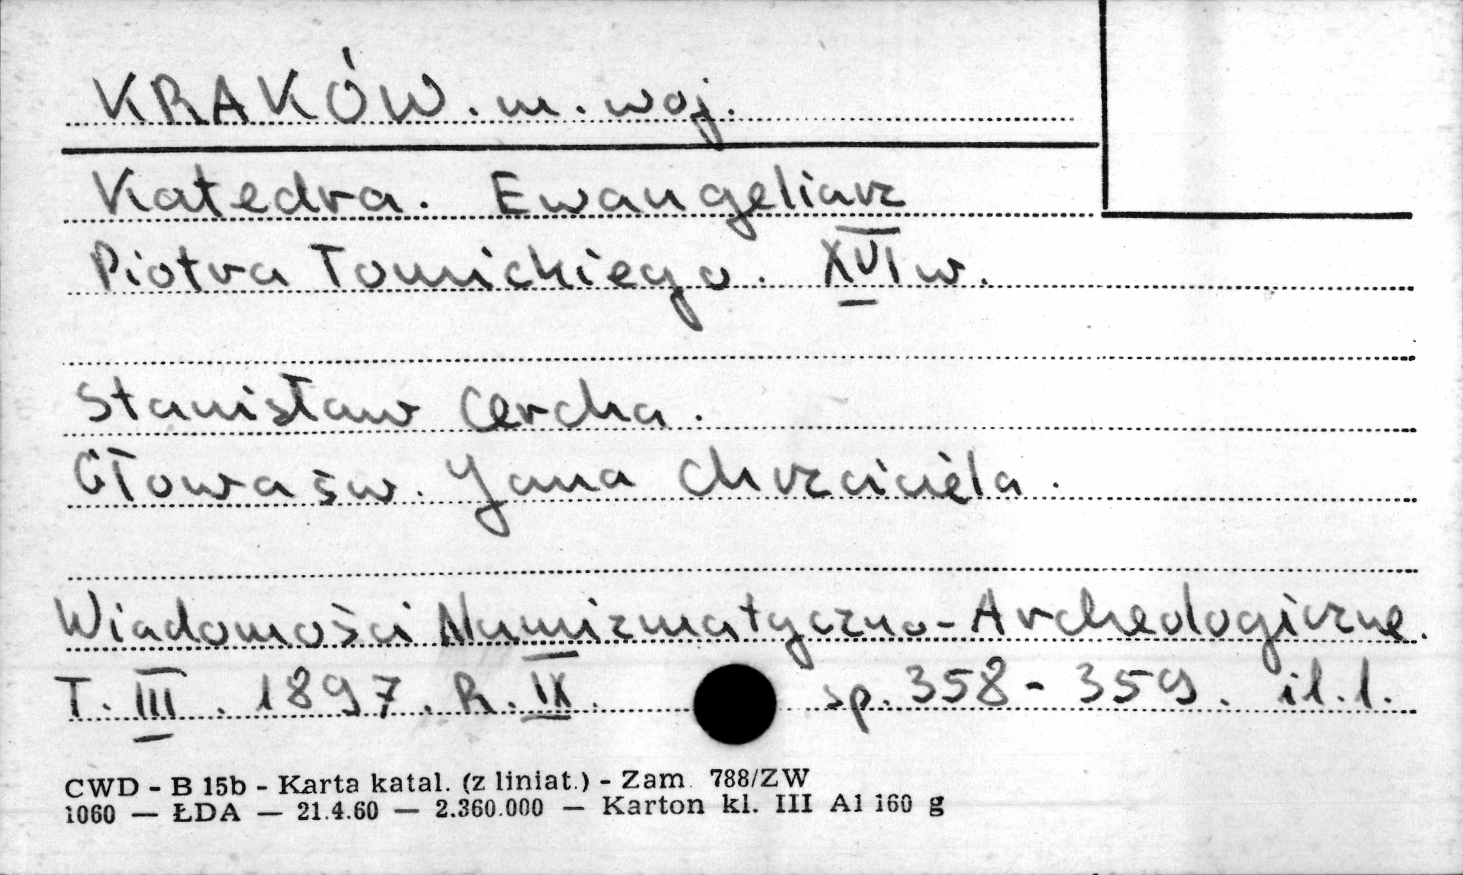 KRAKÓW. m. woj.
Katedra. Ewangeliarz
Piotra Tomickiego. XVI w.
Stanisław Cercha.
Głowa św. Jana Chrzciciela.
Wiadomości Numizmatyczno-Archeologiczne.
T. III. 1897. R. IX. sp. 358-359. il. 1.
CWD - B 15b - Karta katal. (z liniat.) - Zam. 788/ZW
1060 — ŁDA — 21.4.60 — 2.360.000 — Karton kl. III A1 160 g